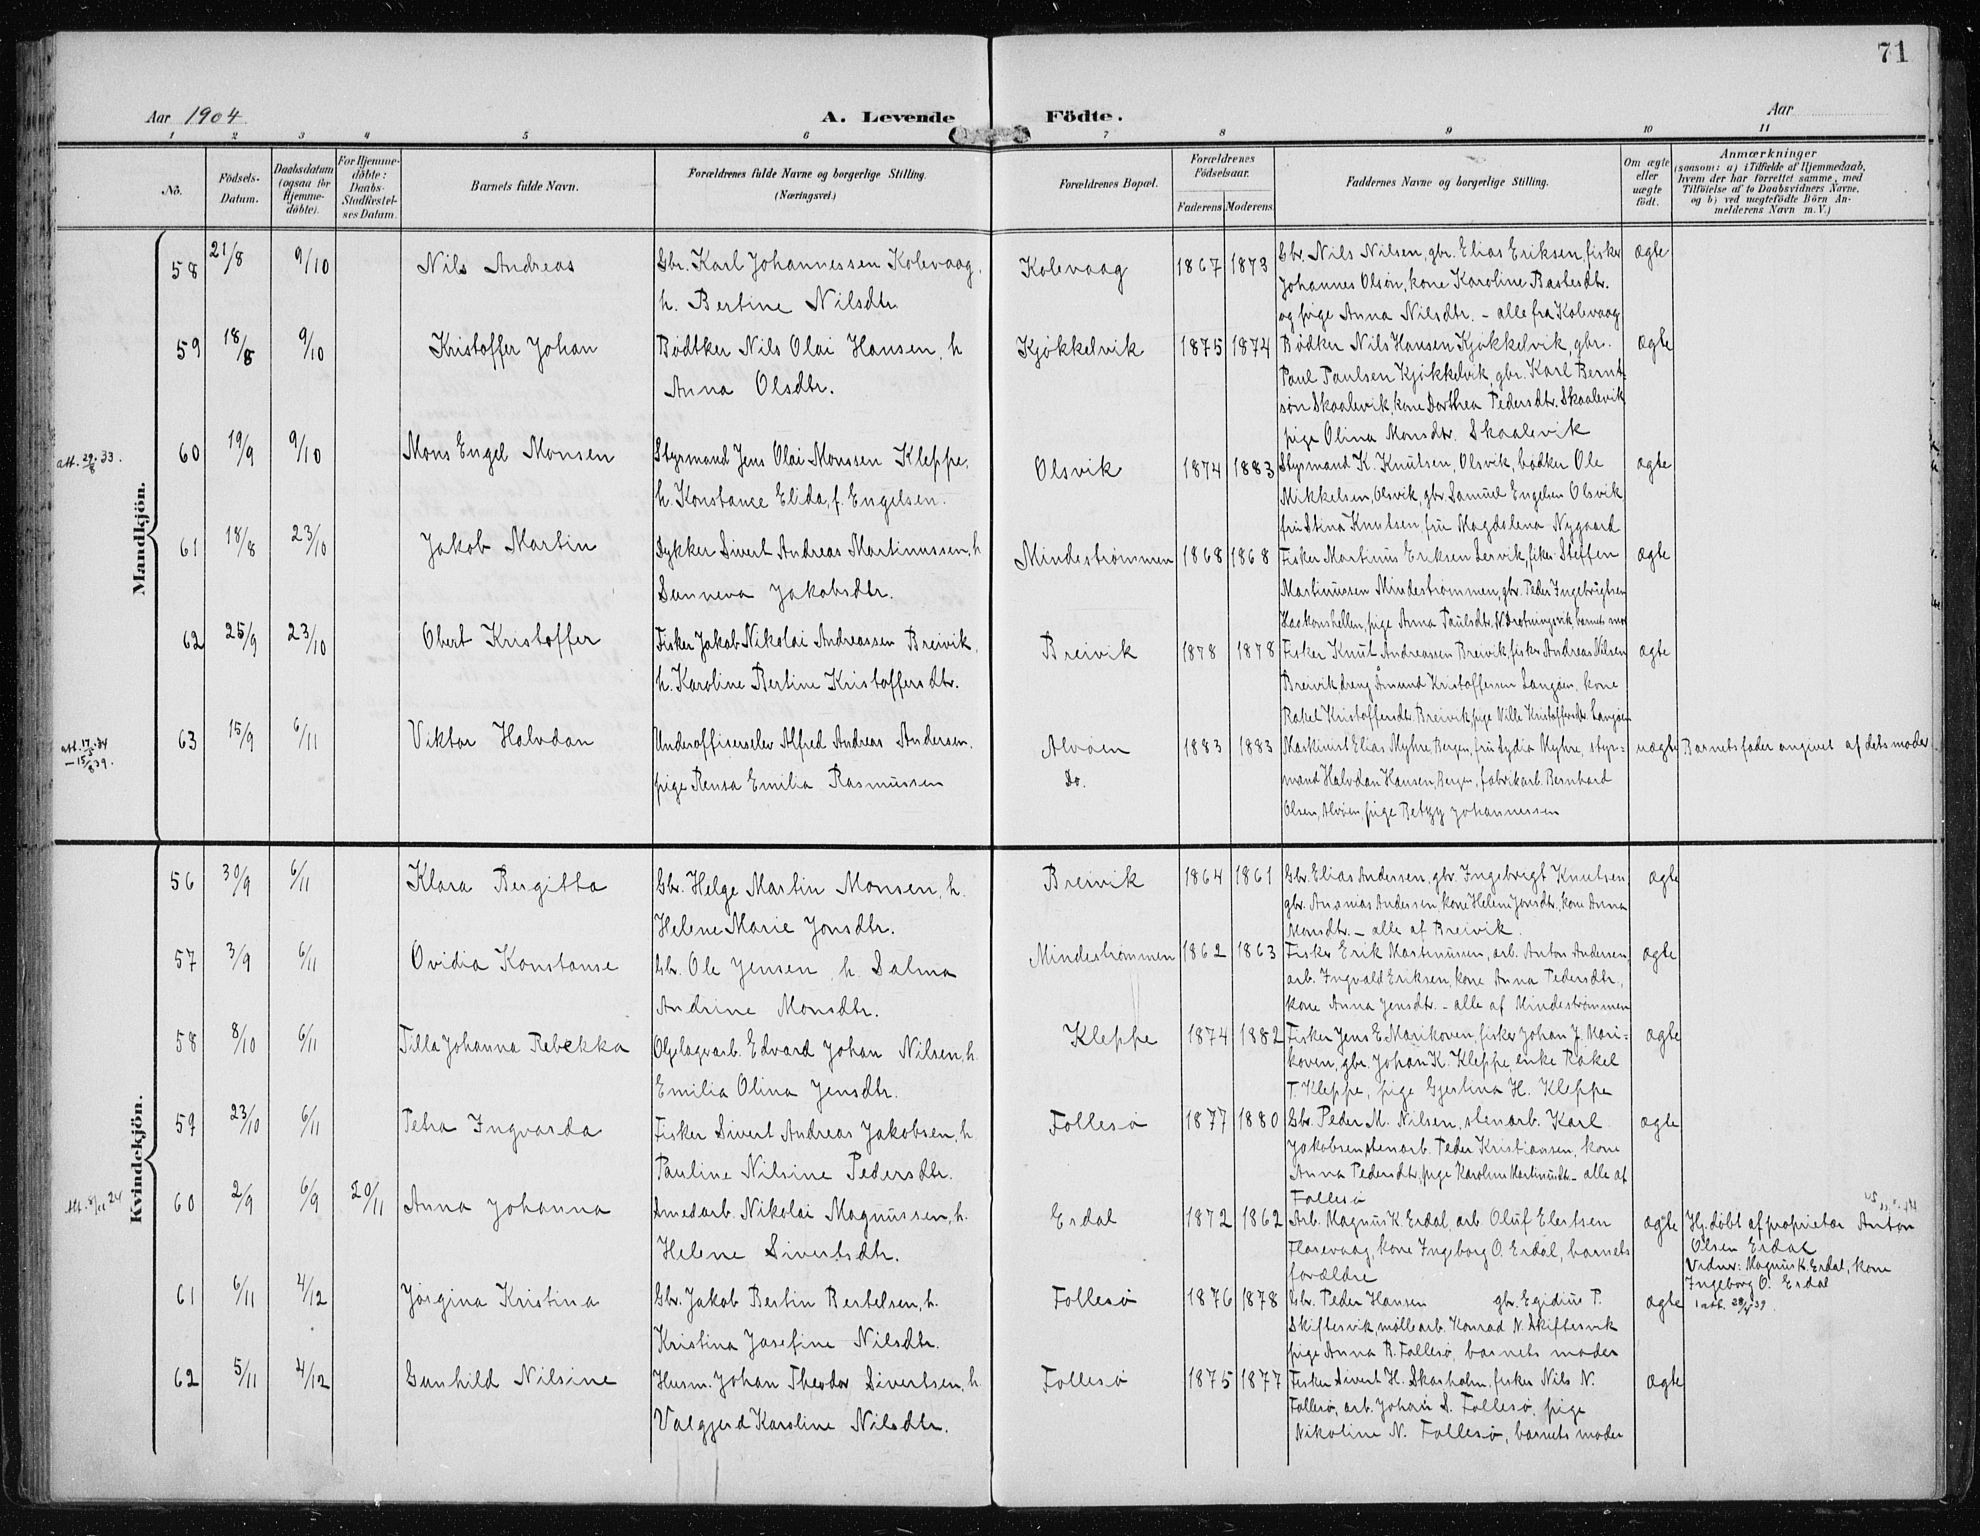 71
Aar 1904.
A. Levende Födte.
Aar
1 2 3 4 5 6 7 8 9 10 11
No.
Födsels-Datum.
Daabsdatum (ogsaa för Hjemme-döbte).
For Hjemme-döbte: Daabs-Stadfestel-ses Datum.
Barnets fulde Navn.
Forældrenes fulde Navne og borgerlige Stilling. (Næringsvei.)
Forældrenes Bopæl.
Forældrenes Födselsaar.
Faderens. Moderens.
Faddernes Navne og borgerlige Stilling.
Om ægte eller uægte födt.
Anmærkninger
(saasom: a) i Tilfælde af Hjemmedaab,
hvem der har forrettet samme, med
Tilföielse af to Daabsvidners Navne,
og b) ved uægtefödte Börn An-
melderens Navn m. V.)
Mandkjön.
58 21/8 9/10 Nils Andreas Gbr. Karl Johannessen Kolevaag, Kolevaag 1867 1873 Gbr. Nils Nilsen, gbr. Elias Eriksen, fisker ægte
h. Bertine Nilsdtr. Johannes Olson, kone Karoline Bastesdtr.
og pige Anna Nilsdtr. - alle fra Kolevaag
59 18/8 9/10 Kristoffer Johan Bødtker Nils Olai Hansen, h Kjøkkelvik 1875 1874 Bødker Nils Hansen Kjøkkelvik, gbr. ægte
Anna Olsdtr. Paul Paulsen Kjøkkelvik, gbr. Karl Bernt-
søn Skaalevik, kone Dorthea Pedersdtr. Skaalevik
pige Olina Monsdtr. Skaalevik
att. 29/8 33. 60 19/9 9/10 Mons Engel Monsen Styrmand Jens Olai Monssen Kleppe, Olsvik 1874 1883 Styrmand K. Knutsen, Olsvik, bødker Ole ægte
h. Konstance Elida, f. Engelsen. Mikkelsen, Olsvik, gbr. Samuel Engelsen Olsvik
fru Stina Knutsen, frue Magdalena Nygaard
61 18/8 23/10 Jakob Martin Dykker Sivert Andreas Martinussen, h Mindestrømmen 1868 1868 Fisker Martinus Eriksen Lervik, fisker Steffen ægte
Sunneva Jakobsdtr. Martinussen Mindestrømmen, gbr. Peder Ingebrigtsen
Haakonshellen, pige Anna Paulsdtr. N. Drotningsvik, barnets mor
62 25/9 23/10 Obert Kristoffer Fisker Jakob Nikolai Andreassen Breivik, Breivik 1878 1878 Fisker Knut Andreassen Breivik, fisker Andreas Nilsen ægte
h. Karoline Bertine Kristoffersdtr. Breivik, dreng Åmund Kristoffersen Langøen, kone
Rakel Kristoffersdtr. Breivik, pige Nille Kristoffersdtr. Langøen
att. 17/5 34 - 15/8 39. 63 15/9 6/11 Viktor Halvdan Underoffiserselev Alfred Andreas Andersen. Alvøen 1883 1883 Maskinist Elias Myhre, Bergen, fru Lydia Myhre, styr- uægte Barnets fader angivet af dets moder.
pige Rensa Emilia Rasmussen Do. mand Halvdan Hansen, Bergen, fabrikarb. Bernhard
Olsen, Alvøen, pige Betzy Johannessen
Kvindekjön.
56 30/9 6/11 Klara Bergitta Gbr. Helge Martin Monsen, h. Breivik 1864 1861 Gbr. Elias Andersen, gbr. Ingebrigt Knutsen ægte
Helene Marie Jonsdtr. gbr. Ananias Andersen, kone Helene Jonsdtr., kone Anna
Monsdtr. - alle af Breivik.
57 3/9 6/11 Ovidia Konstanse Gbr. Ole Jensen, h. Salma Mindestrømmen 1862 1863 Fisker Erik Martinussen, arb. Anton Andersen, ægte
Andrine Monsdtr. arb. Ingvald Eriksen, kone Anna Pedersdtr.,
kone Anna Jensdtr. - alle af Mindestrømmen
58 8/10 6/11 Tilla Johanna Rebekka Oljelagerarb. Edvard Johan Nilsen, h. Kleppe 1874 1882 Fisker Jens E. Marikoven, fisker Johan J. Mari- ægte
Emilia Olina Jensdtr. koven, gbr. Johan K. Kleppe, enke Rakel
T. Kleppe, pige Gjertina H. Kleppe
59 23/10 6/11 Petra Ingvarda Fisker Sivert Andreas Jakobsen, h. Follesø 1877 1880 Gbr. Peder M. Nilsen, stenarb. Karl ægte
Pauline Nilsine Pedersdtr. Jakobsen, stenarb. Peder Kristiansen, kone
Anna Pedersdtr., pige Karoline Martinusdtr. - alle af
Follesø
60 2/9 6/9 20/11 Anna Johanna Smedarb. Nikolai Magnussen, h. Erdal 1872 1862 Arb. Magnus K. Erdal, arb. Oluf Elertsen ægte Hj. døbt af proprietær Anton
Helene Sivertsdtr. Florevaag, kone Ingeborg O. Erdal, barnets Olsen Erdal
forældre Vidner: Magnus K. Erdal, kone
Ingeborg O. Erdal
61 6/11 4/12 Jørgina Kristina Gbr. Jakob Bertin Bertelsen, h. Follesø 1876 1878 Gbr. Peder Hansen gbr. Egidius P. ægte
Kristina Josefine Nilsdtr. Skiftesvik, møllearb. Konrad N. Skiftesvik
pige Anna B. Follesø, barnets moder
62 5/11 4/12 Gunhild Nilsine Husm. Johan Theodor Sivertsen, h. Follesø 1875 1877 Fisker Sivert H. Skarholm, fisker Nils N. ægte
Valgjerd Karoline Nilsdtr. Follesø, arb. Johan S. Follesø, pige
Nikoline N. Follesø, barnets moder